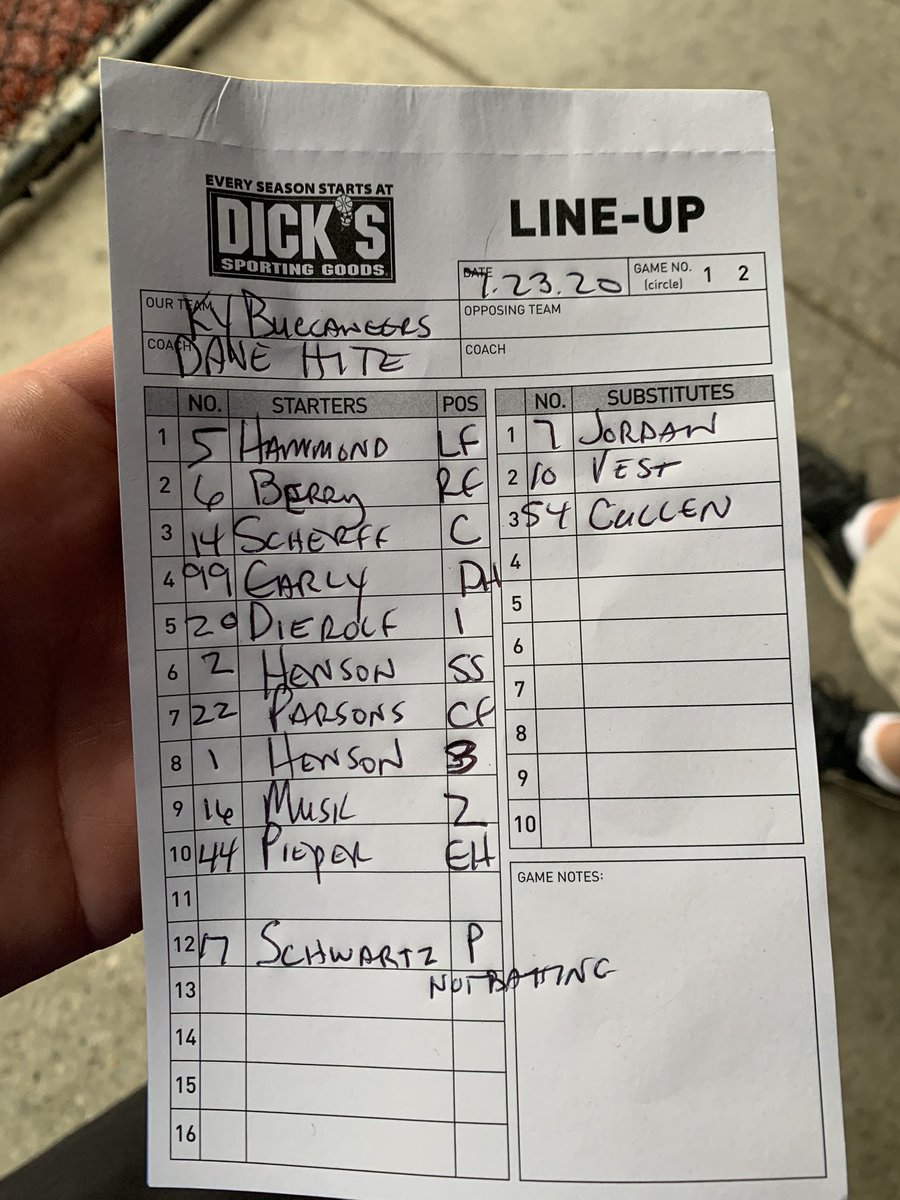 EVERY SEASON STARTS AT
DICK'S
SPORTING GOODS
LINE-UP
DATE 7.23.20 GAME NO. (circle) 1 2
OUR TEAM KY BUCCANEERS
OPPOSING TEAM
COACH DANE HITE
COACH
NO. STARTERS POS
1 5 HAMMOND LF
2 6 BERRY RF
3 14 SCHERFF C
4 99 EARLY DH
5 20 DIEROLF 1
6 2 HENSON SS
7 22 PARSONS CF
8 1 HENSON 3
9 16 MUSIL 2
10 44 PIEPER EH
11
12 17 SCHWARTZ P
NOT BATTING
13
14
15
16
NO. SUBSTITUTES
1 7 JORDAN
2 10 VEST
3 54 CULLEN
4
5
6
7
8
9
10
GAME NOTES: